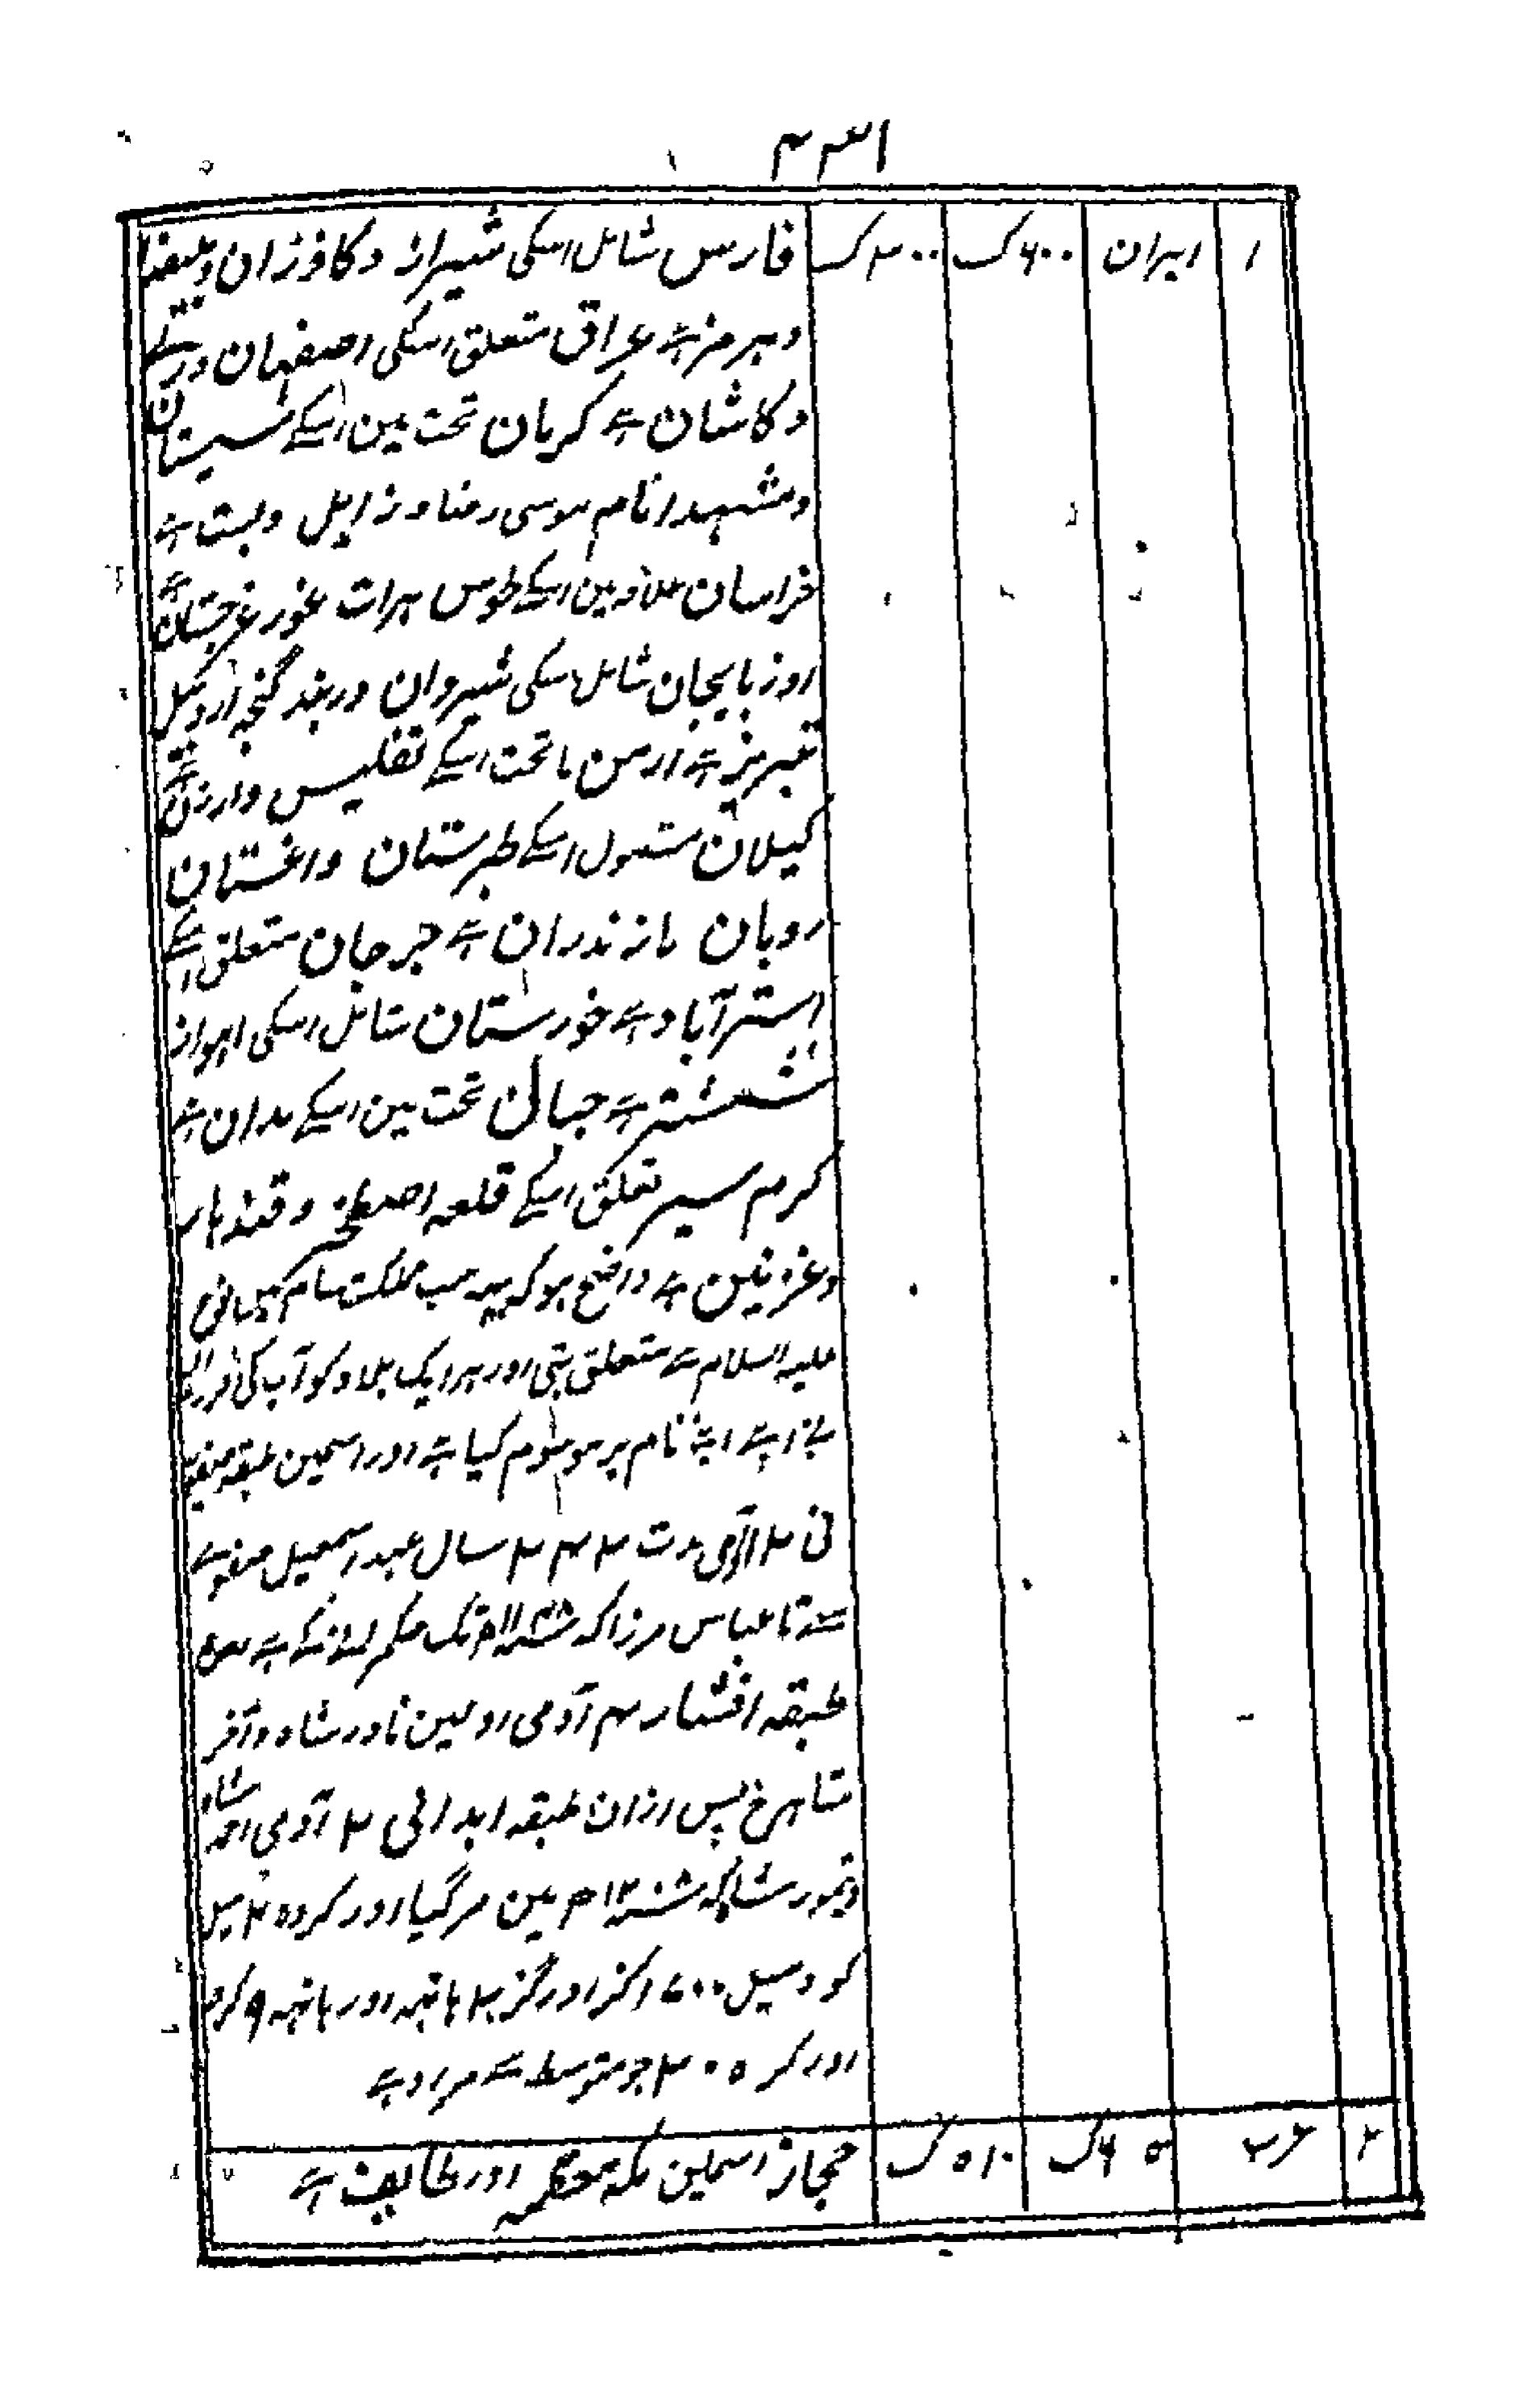 ۴۳۱
۱ ایران ۶۰۰ ک ۳۰۰ ک فارس شامل اسکی شیراز و کافوزان و بیضا
و ہرمز ہے عراق متعلق اسکی اصفہان و رے
و کاشان ہے کرمان تحت مین اسکے سیستان
و مشہد امام موسی رضا و زابل و بست ہے
خراسان علاقہ مین اسکے طوس ہرات غور غرجستان ہے
اوزبایجان شامل اسکی شیروان دربند گنجہ اردبیل
تبریز ہے ارمن ماتحت اسکے تفلیس و
گیلان شمول اسکے طبرستان داغستان
رویان مازندران ہے جرجان متعلق اسکے
استرآباد ہے خورستان شامل اسکی اہواز
ششتر ہے جبال تحت مین اسکے ہمدان ہے
کرم سیر تعلق اسکے قلعہ اصطخر و قندہار
و غزنین ہے واضح ہو کہ یہہ سب مملکت سام
علیہ السلام سے متعلق تہی اور ہر ایک بلاد کو آپ کی
نے اپنے اپنے نام پر موسوم کیا ہے اور اسمین طبقہ صفویہ
فی آدمی مدت ۲۴۲ سال عہد اسمعیل صفوی
سے تا عباس مرزا کہ تک حکم
طبقہ افشار ۴ آدمی اولین نادر شاہ و آخر
شاہرخ پس ازان طبقہ ابدالی ۲ آدمی احمد شاہ
و تیمور شاہ کہ مین مر گیا اور کروہ ۲ میل
کو و میل ۷۰۰ اگز اور گز ۳ ہاتہہ اور ہاتہہ ۹ گرہ
اور گرہ ۳۰۰ جو متوسط سے مراد ہے
۲ عرب ۶۵ ک ۵۱۰ ک حجاز اسمین مکہ معظمہ اور طایف ہے